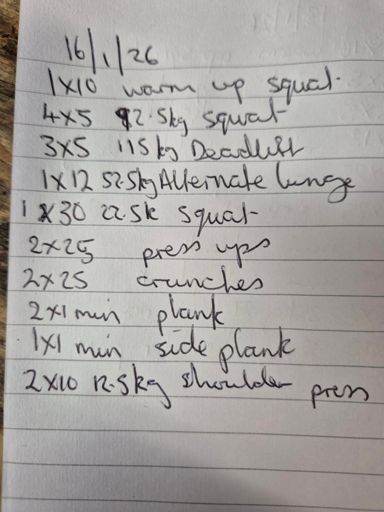 16/1/26
1x10 warm up squat
4x5 92.5kg squat
3x5 115kg Deadlift
1x12 52.5kg Alternate lunge
1x30 22.5k squat
2x25 press ups
2x25 crunches
2x1 min plank
1x1 min side plank
2x10 12.5kg shoulder press